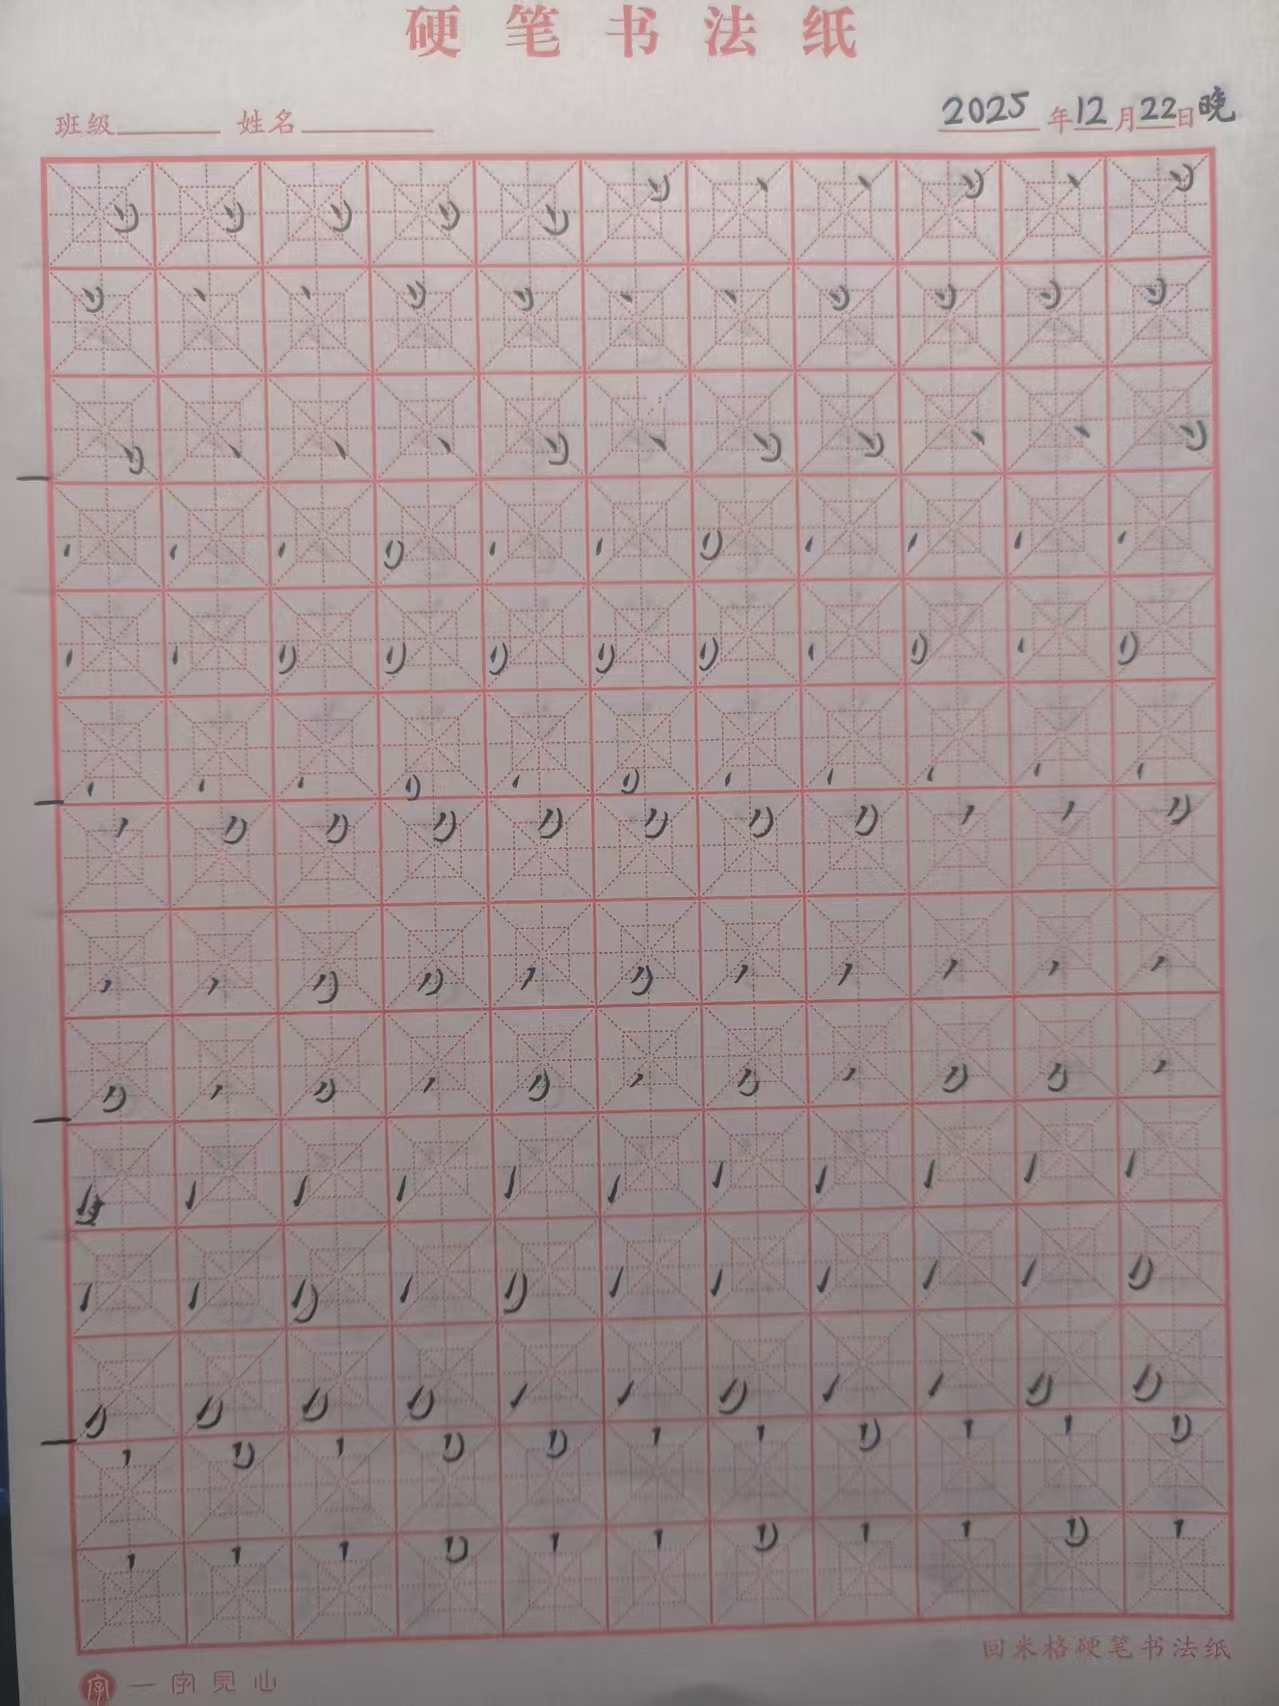 硬笔书法纸
班级 姓名 2025年12月22日晚
回米格硬笔书法纸
字 一字见心